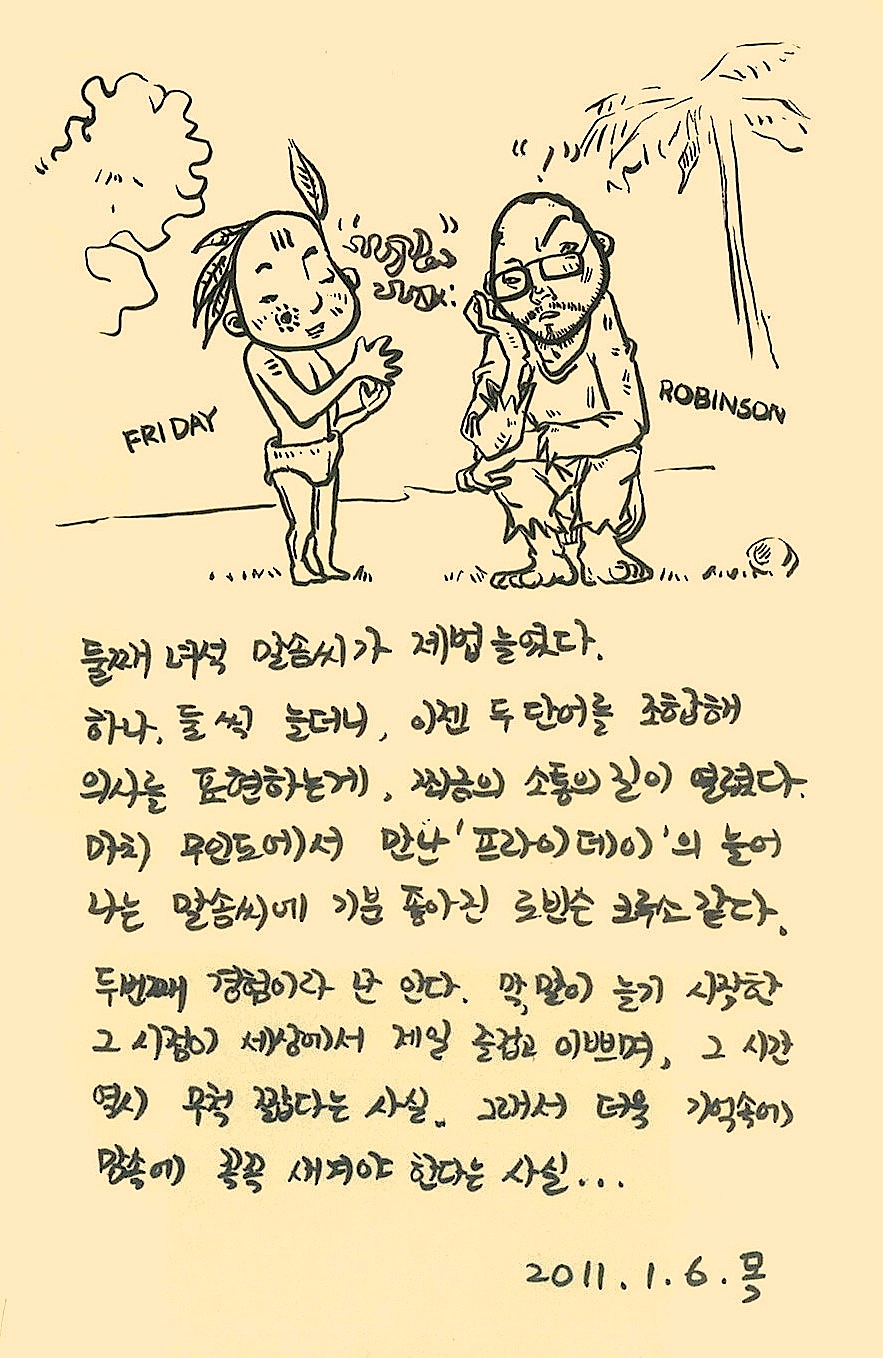 "!"
FRIDAY
ROBINSON
둘째 녀석 말솜씨가 제법 늘었다.
하나, 둘씩 늘더니, 이젠 두 단어를 조합해
의사를 표현하는게, 쬐금의 소통의 길이 열렸다.
마치 무인도에서 만난 '프라이데이'의 늘어
나는 말솜씨에 기분 좋아진 로빈슨 크루소 같다.
두번째 경험이라 난 안다. 막, 말이 늘기 시작한
그 시점이 세상에서 제일 즐겁고 이쁘며, 그 시간
역시 무척 짧다는 사실. 그래서 더욱 기억속에
맘속에 꼭꼭 새겨야 한다는 사실...
2011.1.6.목